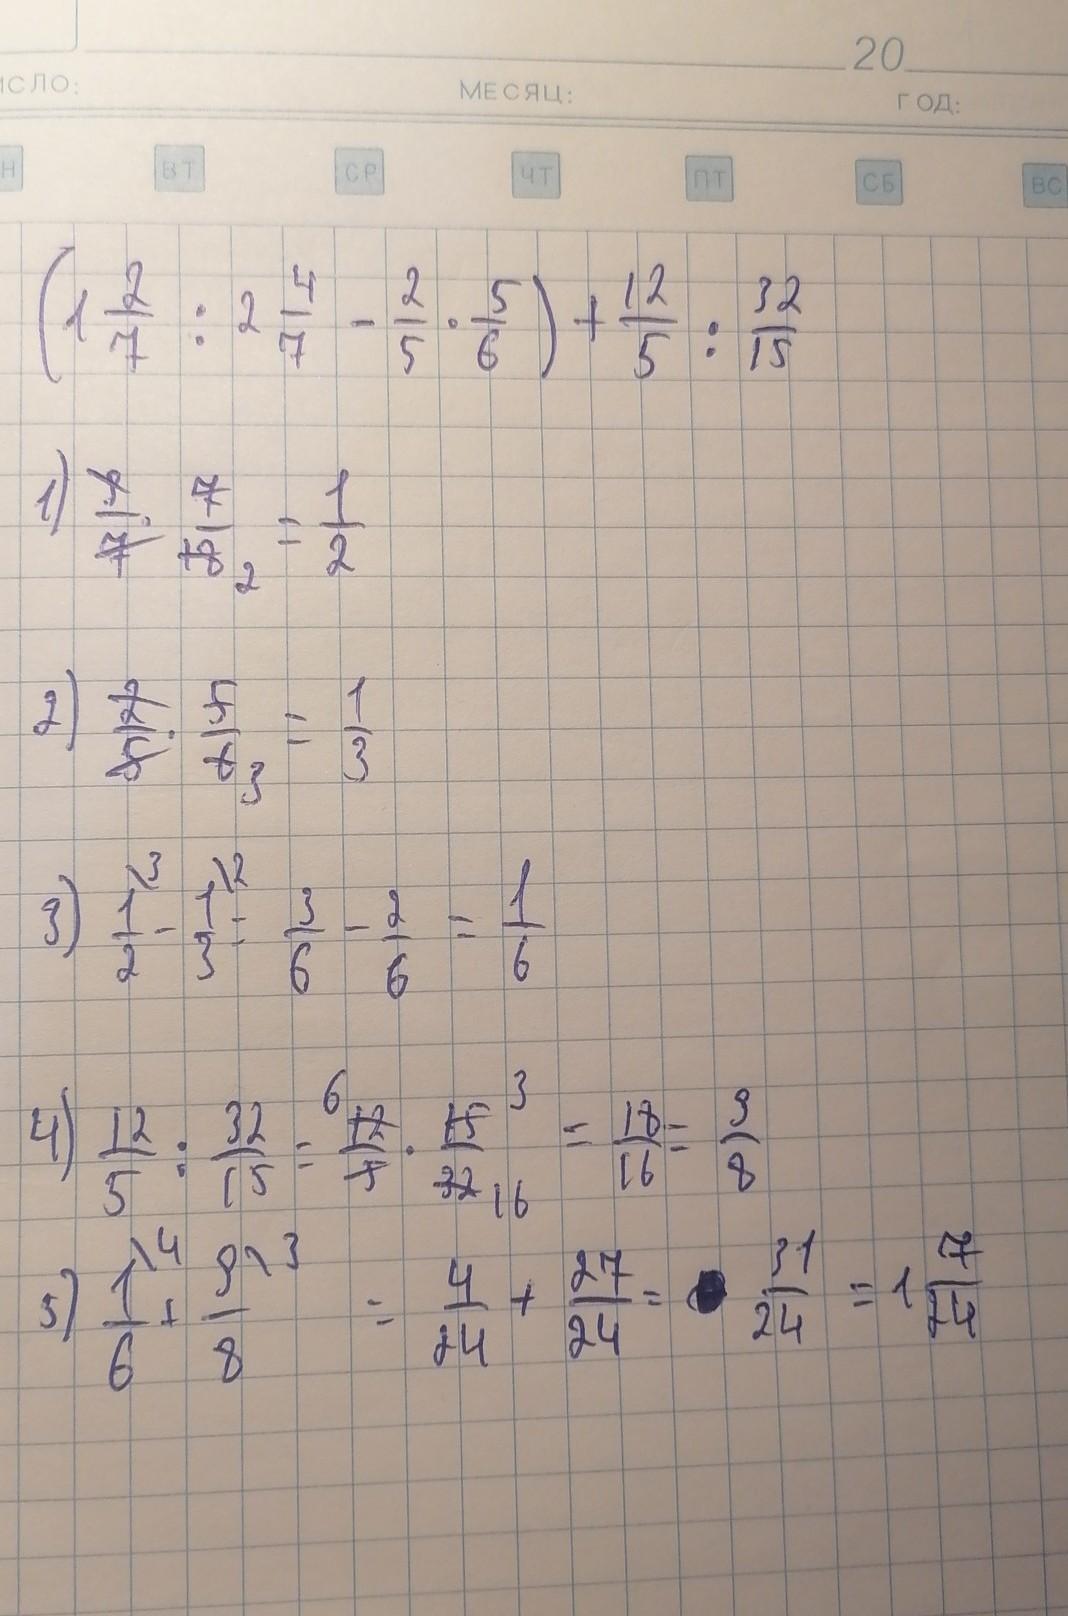 20
ИСЛО: МЕСЯЦ: ГОД:
Н ВТ СР ЧТ ПТ СБ ВС
(1 2/7 : 2 4/7 - 2/5 · 5/6) + 12/5 : 32/15
1) 9/7 · 7/18 2 = 1/2
2) 2/5 · 5/6 3 = 1/3
3) 1/2 \3 - 1/3 \2 = 3/6 - 2/6 = 1/6
4) 12/5 : 32/15 = 6 12/5 · 15/32 3 16 = 18/16 = 9/8
5) 1/6 \4 + 9/8 \3 = 4/24 + 27/24 = 31/24 = 1 7/24